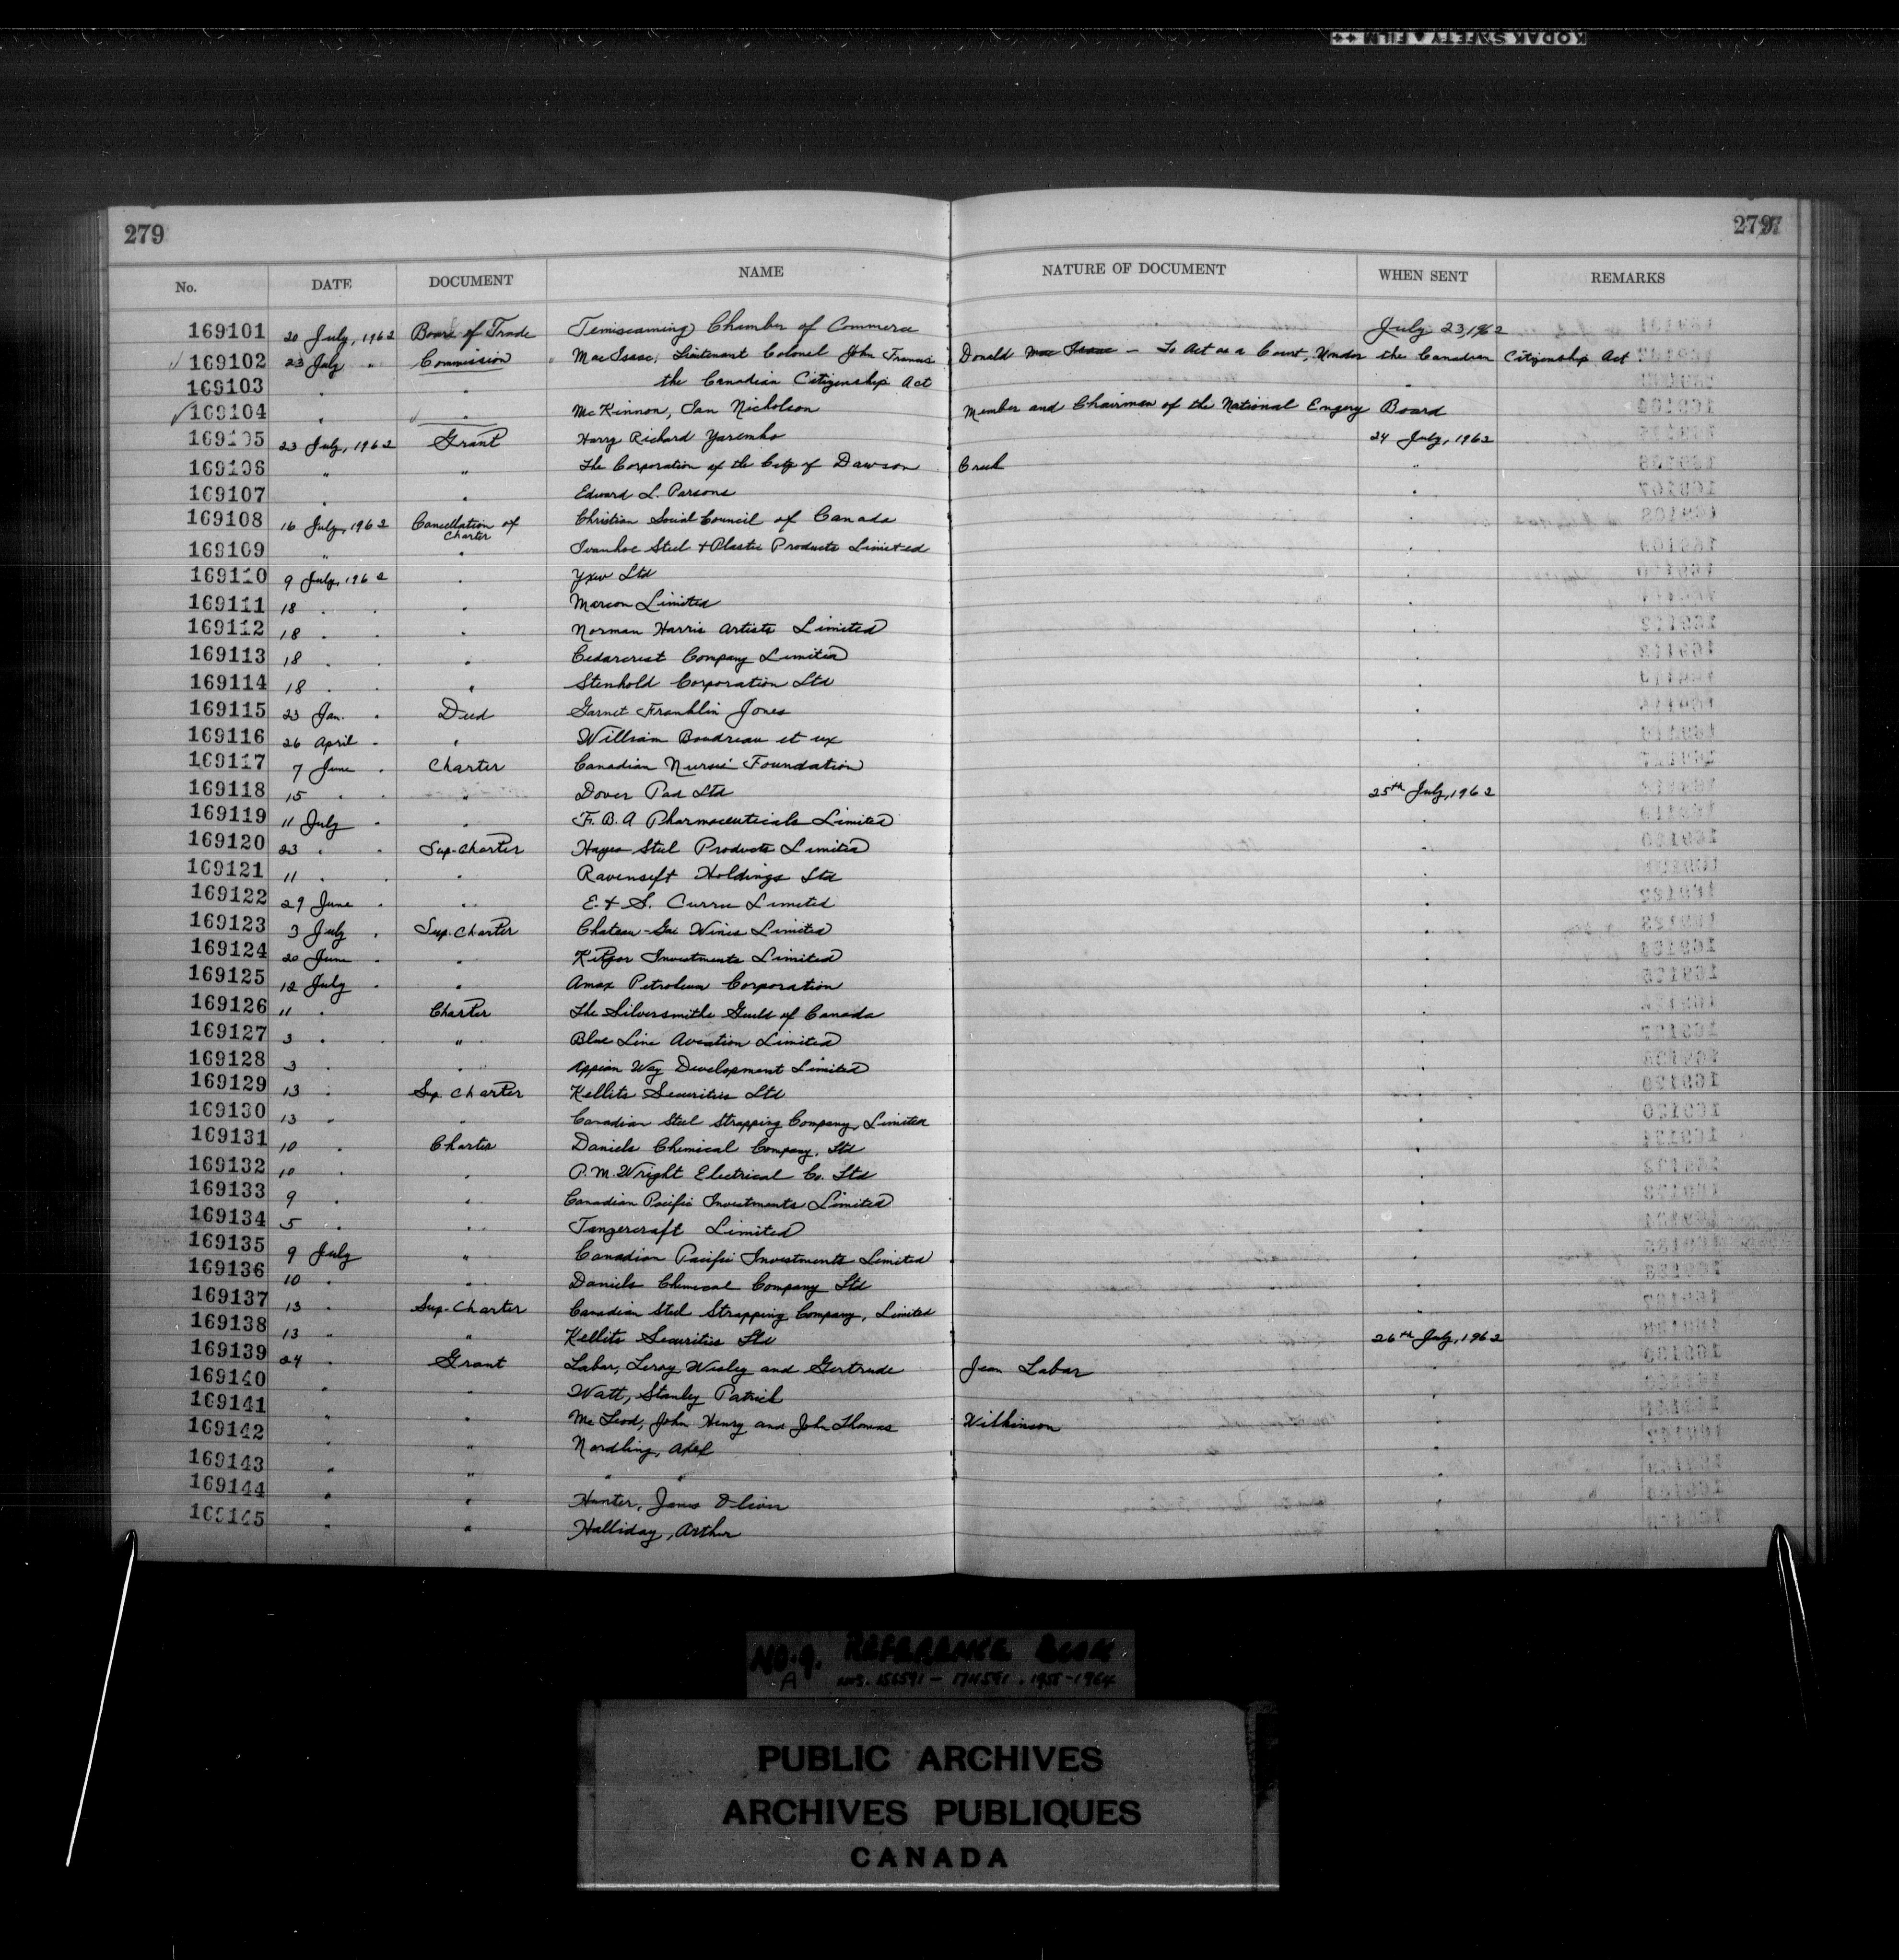 KODAK SAFETY FILM
279 279
No. DATE DOCUMENT NAME NATURE OF DOCUMENT WHEN SENT REMARKS
169101 20 July, 1962 Board of Trade Temiscaming Chamber of Commerce July 23, 1962
169102 23 July " Commission Mac Isaac, Lieutenant Colonel John Francis Donald Mac Isaac - To Act as a Court, Under the Canadian Citizenship Act
169103 " " the Canadian Citizenship Act "
169104 " " McKinnon, Ian Nicholson Member and Chairman of the National Engery Board
169105 23 July, 1962 Grant Harry Richard Yaremko 24 July, 1962
169106 " " The Corporation of the City of Dawson Creek "
169107 " " Edward L. Parsons "
169108 16 July, 1962 Cancellation of Charter Christian Social Council of Canada "
169109 " " Ivanhoe Steel & Plastic Products Limited "
169110 9 July, 1962 " Yxw Ltd "
169111 18 " " " Marcon Limited "
169112 18 " " " Norman Harris Artists Limited "
169113 18 " " " Cedarcrest Company Limited "
169114 18 " " " Stenhold Corporation Ltd "
169115 23 Jan. " Deed Garnet Franklin Jones "
169116 26 April " " William Boudreau et ux "
169117 7 June " Charter Canadian Nurses' Foundation "
169118 15 " " " Dover Pad Ltd 25th July, 1962
169119 11 July " " F. B. A Pharmaceuticals Limited "
169120 23 " " Sup. Charter Hayes Steel Products Limited "
169121 11 " " " Ravenseft Holdings Ltd "
169122 29 June " " E. & S. Currie Limited "
169123 3 July " Sup. Charter Chateau-Gai Wines Limited "
169124 20 June " " Investments Limited "
169125 12 July " " Amax Petroleum Corporation "
169126 11 " Charter The Silversmiths Guild of Canada "
169127 3 " " " Blue Line Aviation Limited "
169128 3 " " Appian Way Development Limited "
169129 13 " Sup. Charter Kellits Securities Ltd "
169130 13 " " Canadian Steel Strapping Company, Limited "
169131 10 " Charter Daniels Chemical Company, Ltd "
169132 10 " " P. M. Wright Electrical Co. Ltd "
169133 9 " " Canadian Pacific Investments Limited "
169134 5 " " Tangercraft Limited "
169135 9 July " Canadian Pacific Investments Limited "
169136 10 " " Daniels Chemical Company Ltd "
169137 13 " Sup. Charter Canadian Steel Strapping Company, Limited "
169138 13 " " Kellits Securities Ltd 26th July, 1962
169139 24 " Grant Labar, Leroy Wesley and Gertrude Jean Labar "
169140 " " Watt, Stanley Patrick "
169141 " " McLeod, John Henry and John Thomas Wilkinson "
169142 " " Nordling, Axel "
169143 " " " " "
169144 " " Hunter, James Oliver "
169145 " " Halliday, Arthur "
NO. 9. REFERENCE BOOK
A NOS. 156591 - 174591. 1955-1964
PUBLIC ARCHIVES
ARCHIVES PUBLIQUES
CANADA